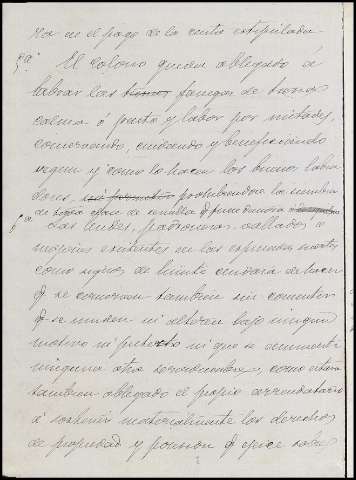 ra en el pago de la renta estipulada.
5ª El colono queda obligado á
labrar las tierras fanegas de tierra
calma á pasto y labor por mitades,
conservando, cuidando y beneficiando
segun y como lo hacen los buenos labra
dores, prohibiendose la siembra
de clase de semilla q
6ª Las lindes, padrones, vallados, ó
mojones existentes en las espresadas
como signos de linde cuidará de hacer
q se conserven tambien sin consentir
q se muden ni alteren bajo ningun
motivo ni pretexto ni que se
ninguna otra servidumbre, como estará
tambien obligado el propio arrendatario
á sostener materialmente los derechos
de propiedad y posesion q ejerce sobre